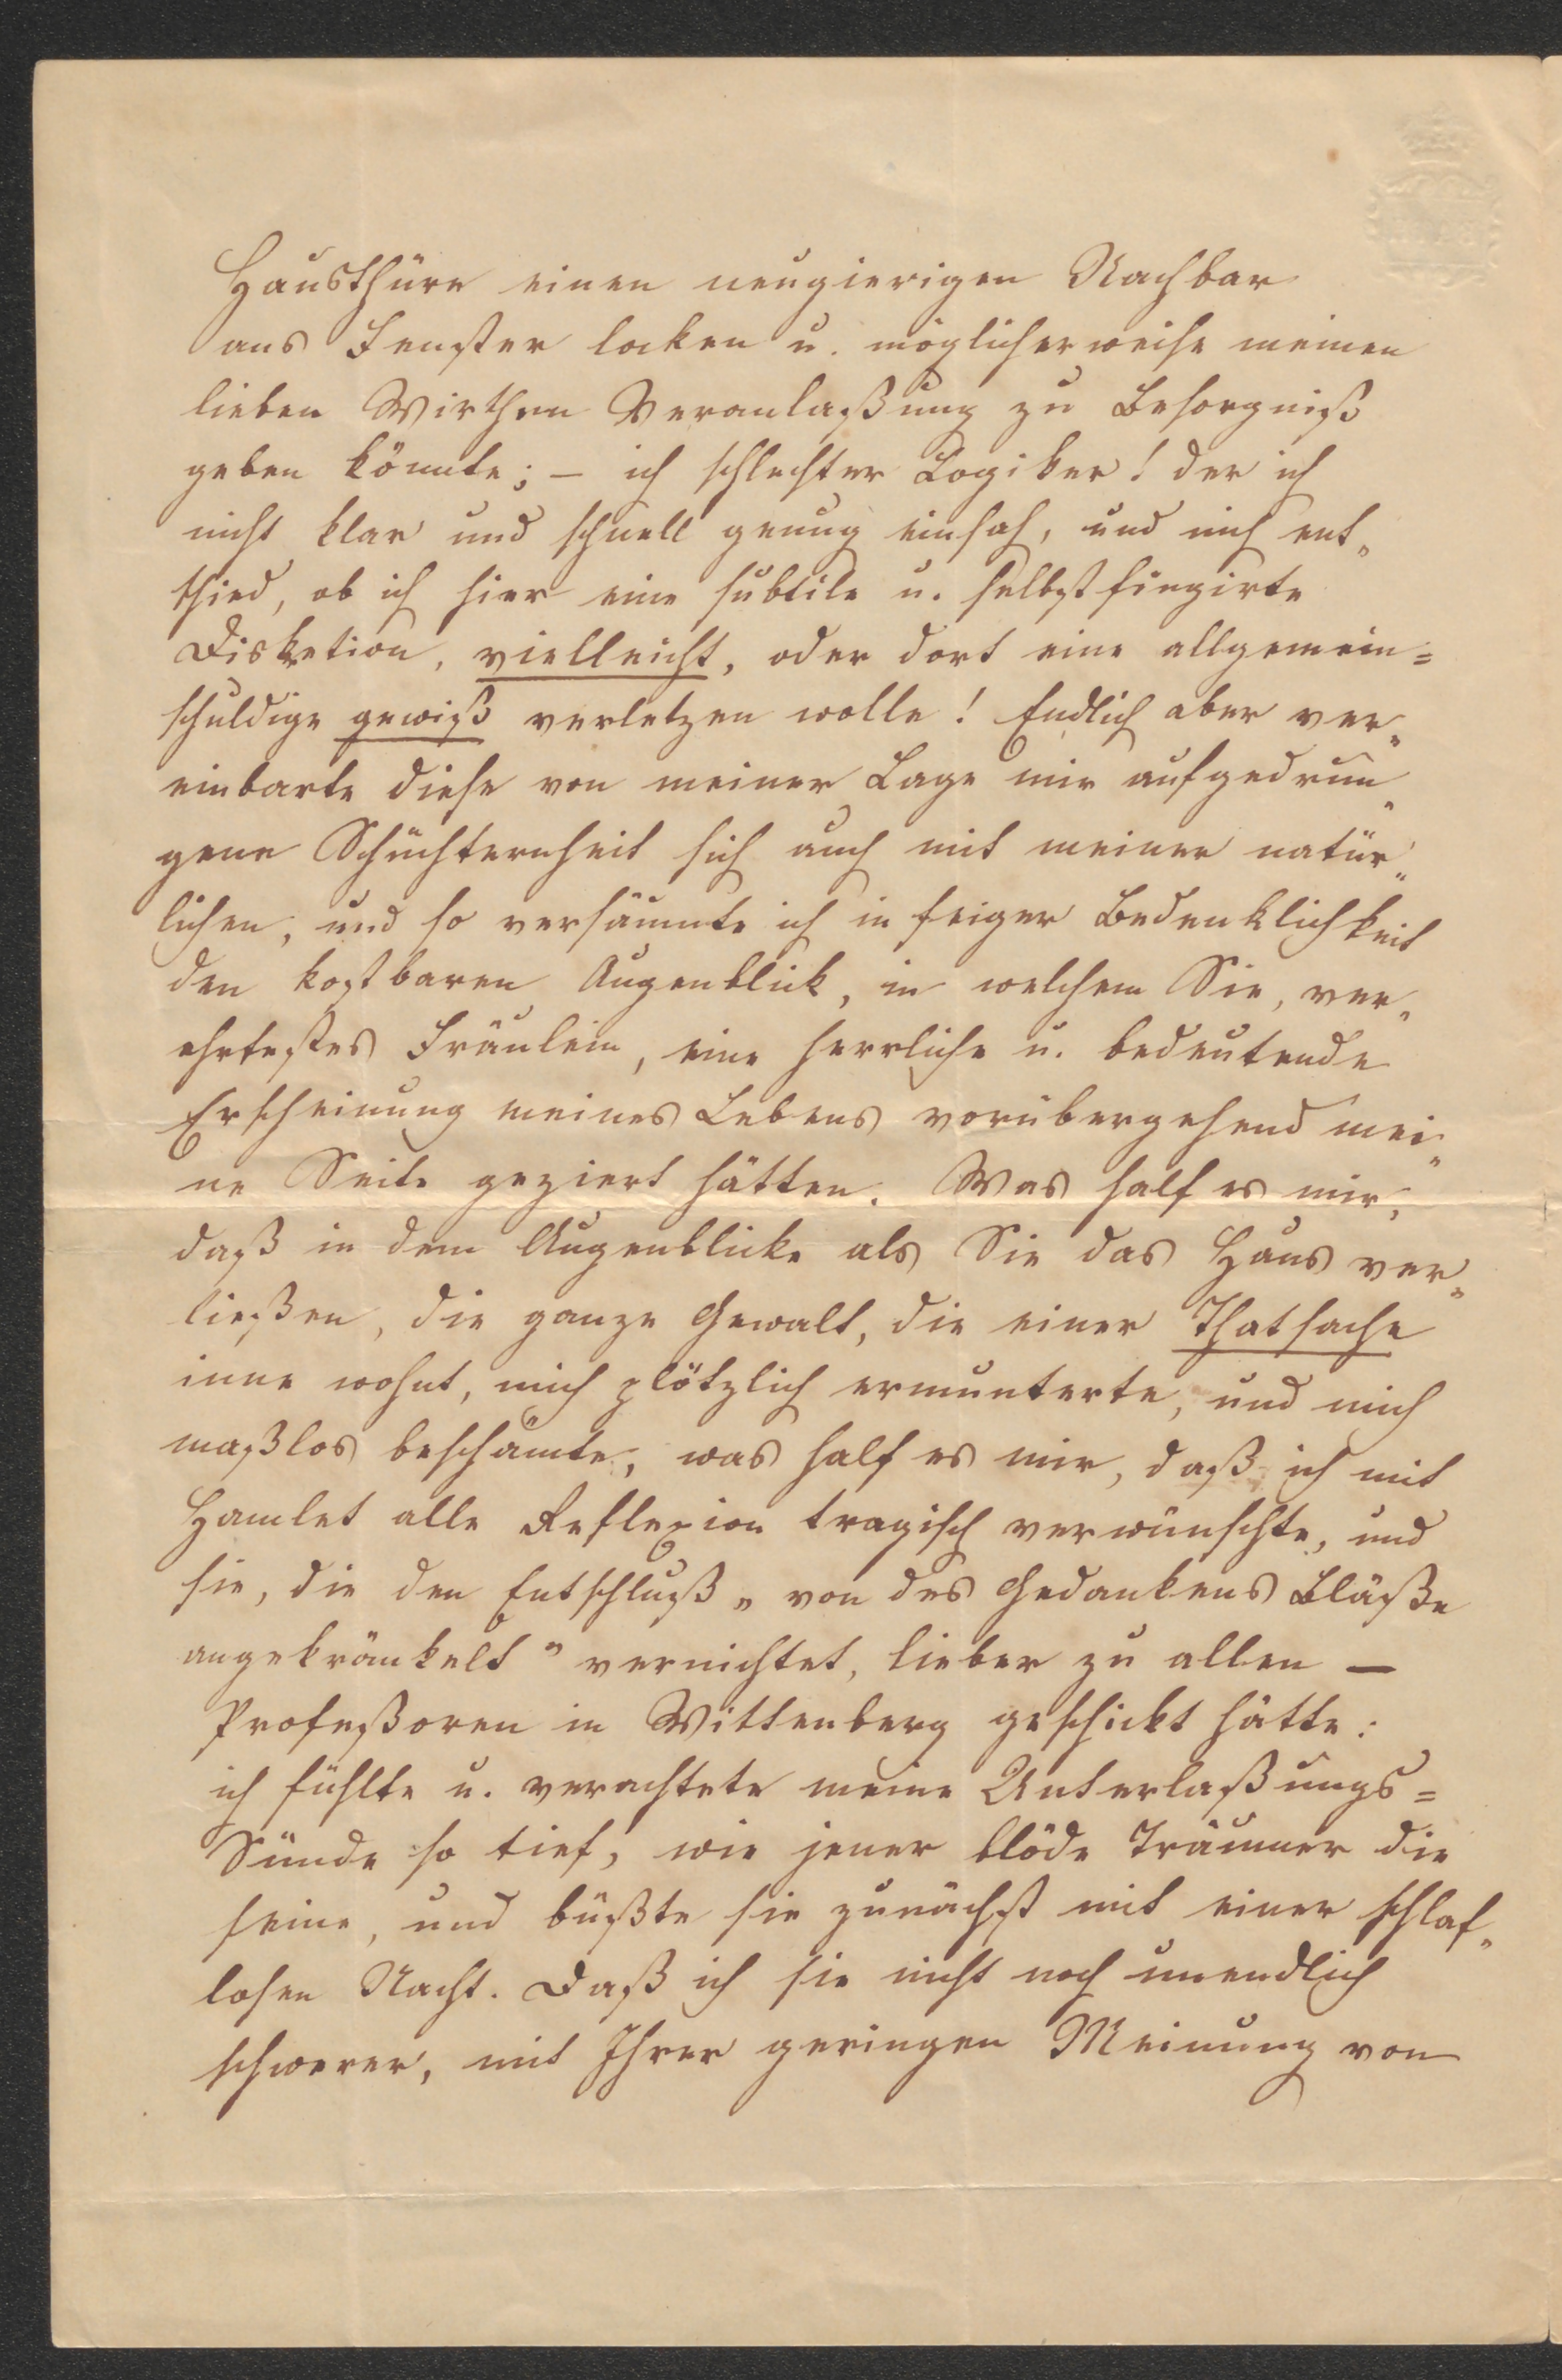 Hausthüre einen neugierigen Nachbar
ans Fenster locken u. möglicherweise meinen
lieben Wirthen Veranlaßung zu Besorgniß
geben könnte; – ich schlechter Logiker! der ich
nicht klar und schnell genug einsah, und mich ent„
schied, ob ich hier eine subtile u. selbstfingirte
Diskretion, vielleicht, oder dort eine allgemein=
schuldige gewiß verletzen wolle! Endlich aber ver„
einbarte diese von meiner Lage mir aufgedrun„
gene Schüchternheit sich auch mit meiner natür„
lichen, und so versäumte ich in feiger Bedenklichkeit
den kostbaren Augenblick, in welchem Sie, ver„
ehrtestes Fräulein, eine herrliche u. bedeutende
Erscheinung meines Lebens vorübergehend mei„
ne Seite geziert hätten. Was half es mir,
daß in dem Augenblicke als Sie das Haus ver„
ließen, die ganze Gewalt, die einer Thatsache
inne wohnt, mich plötzlich ermunterte, und mich
maßlos beschämte, was half es mir, daß ich mit
Hamlet alle Reflexion tragisch verwünschte, und
sie, die den Entschluß „von des Gedankens Bläße
angekränkelt" vernichtet, lieber zu allen –
Profeßoren in Wittenberg geschickt hätte:
ich fühlte u. verachtete meine Unterlaßungs=
Sünde so tief, wie jener blöde Träumer die
seine, und büßte sie zunächst mit einer schlaf„
losen Nacht. Daß ich sie nicht noch unendlich
schwerer, mit Ihrer geringen Meinung von